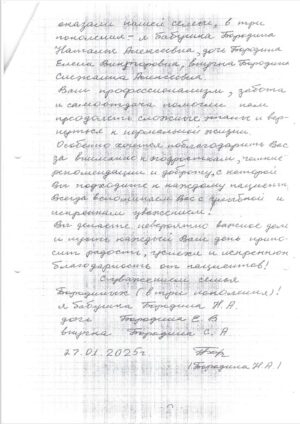 оказали нашей семье, в три
поколения - я бабушка Бородина
Наталья Алексеевна, дочь Бородина
Елена Викторовна, внучка Бородина
Снежанна Алексеевна.
Ваш профессионализм, забота
и самоотдача помогли нам
преодолеть сложные этапы и вер-
нуться к нормальной жизни.
Особенно хочется поблагодарить Вас
за внимание к подробностям, чёткие
рекомендации и доброту, с которой
Вы подходите к каждому пациенту.
Всегда вспоминаем Вас с улыбкой и
искренним уважением!
Вы делаете невероятно важное дело
и пусть каждый Ваш день прино-
сит радость, успехи и искреннюю
благодарность от пациентов!
С уважением семья
Бородиных (в три поколения)!
я бабушка Бородина Н.А.
дочь Бородина Е.В
внучка Бородина С.А
27.01.2025г.
(Бородина Н.А)